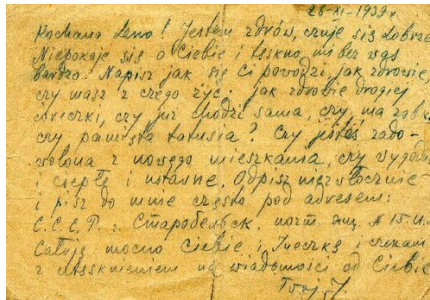 28-XI-1939 r.
Kochana Leno! Jestem zdrów, czuję się dobrze
Niepokoję się o Ciebie i tęskno mi bez was
bardzo. Napisz jak się Ci powodzi, jak zdrowie,
czy masz z czego żyć. jak zdrowie drogiej
córeczki, czy już chodzi sama, czy ma
czy pamięta tatusia? Czy jesteś zado-
wolona z nowego mieszkania, czy
i ciepłe i własne. Odpisz niezwłocznie
i pisz do mnie często pod adresem:
С.С.С.Р. г. Старобельск. почт. ящ. № 15
Całuję mocno Ciebie i i czekam
z utęsknieniem na wiadomości od Ciebie
Twój J.